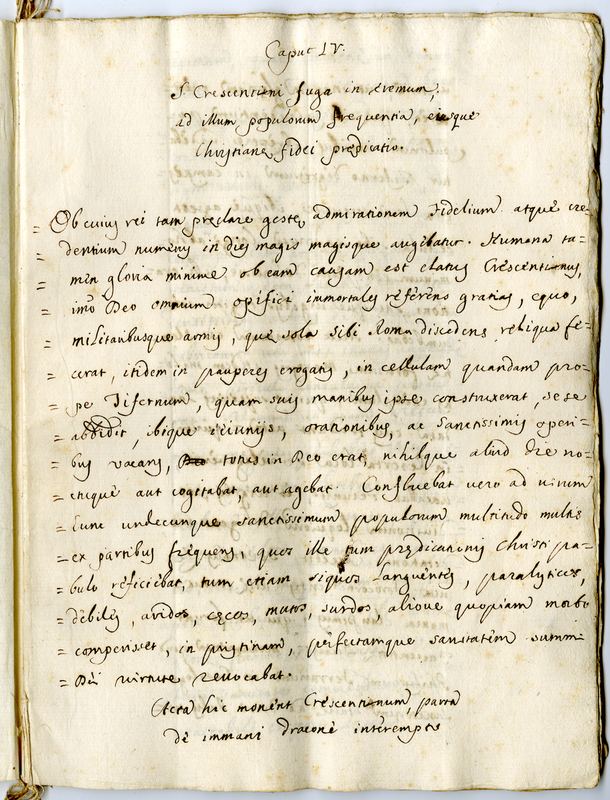 Caput IV.
S. Crescentini fuga in eremum,
ad illum populorum frequentia, eiusque
Christianę fidei prędicatio.
= Ob cuius rei tam pręclare gestę admirationem Fidelium atque cre=
= dentium numerus in dies magis magisque augebatur. Humana ta=
= men gloria minime ob eam causam est elatus Crescentinus,
= imò Deo omnium opifici immortales referens gratias, equo,
= militaribusque armis, quę sola sibi Roma discedens reliqua fe=
= cerat, itidem in pauperes erogatis, in cellulam quandam pro=
= pe Tifernum, quam suis manibus ipse construxerat, sese
= abdidit, ibique ieiunijs, orationibus, ac sanctissimis operi=
= bus vacans, totus in Deo erat, nihilque aliud die no=
= ctuque aut cogitabat, aut agebat. Confluebat vero ad virum
= hunc undecunque sanctissimum populorum multitudo multis
= ex partibus frequens, quos ille tum prędicationis Christi pa=
= bulo reficiebat, tum etiam siquos languentes, paralyticos,
= debiles, aridos, cęcos, mutos, surdos, aliove quopiam morbo
= comperisset, in pristinam, perfectamque sanitatem summi
= Dei virtute revocabat.
Acta hic monent Crescentinum, parta
de immani dracone interempto